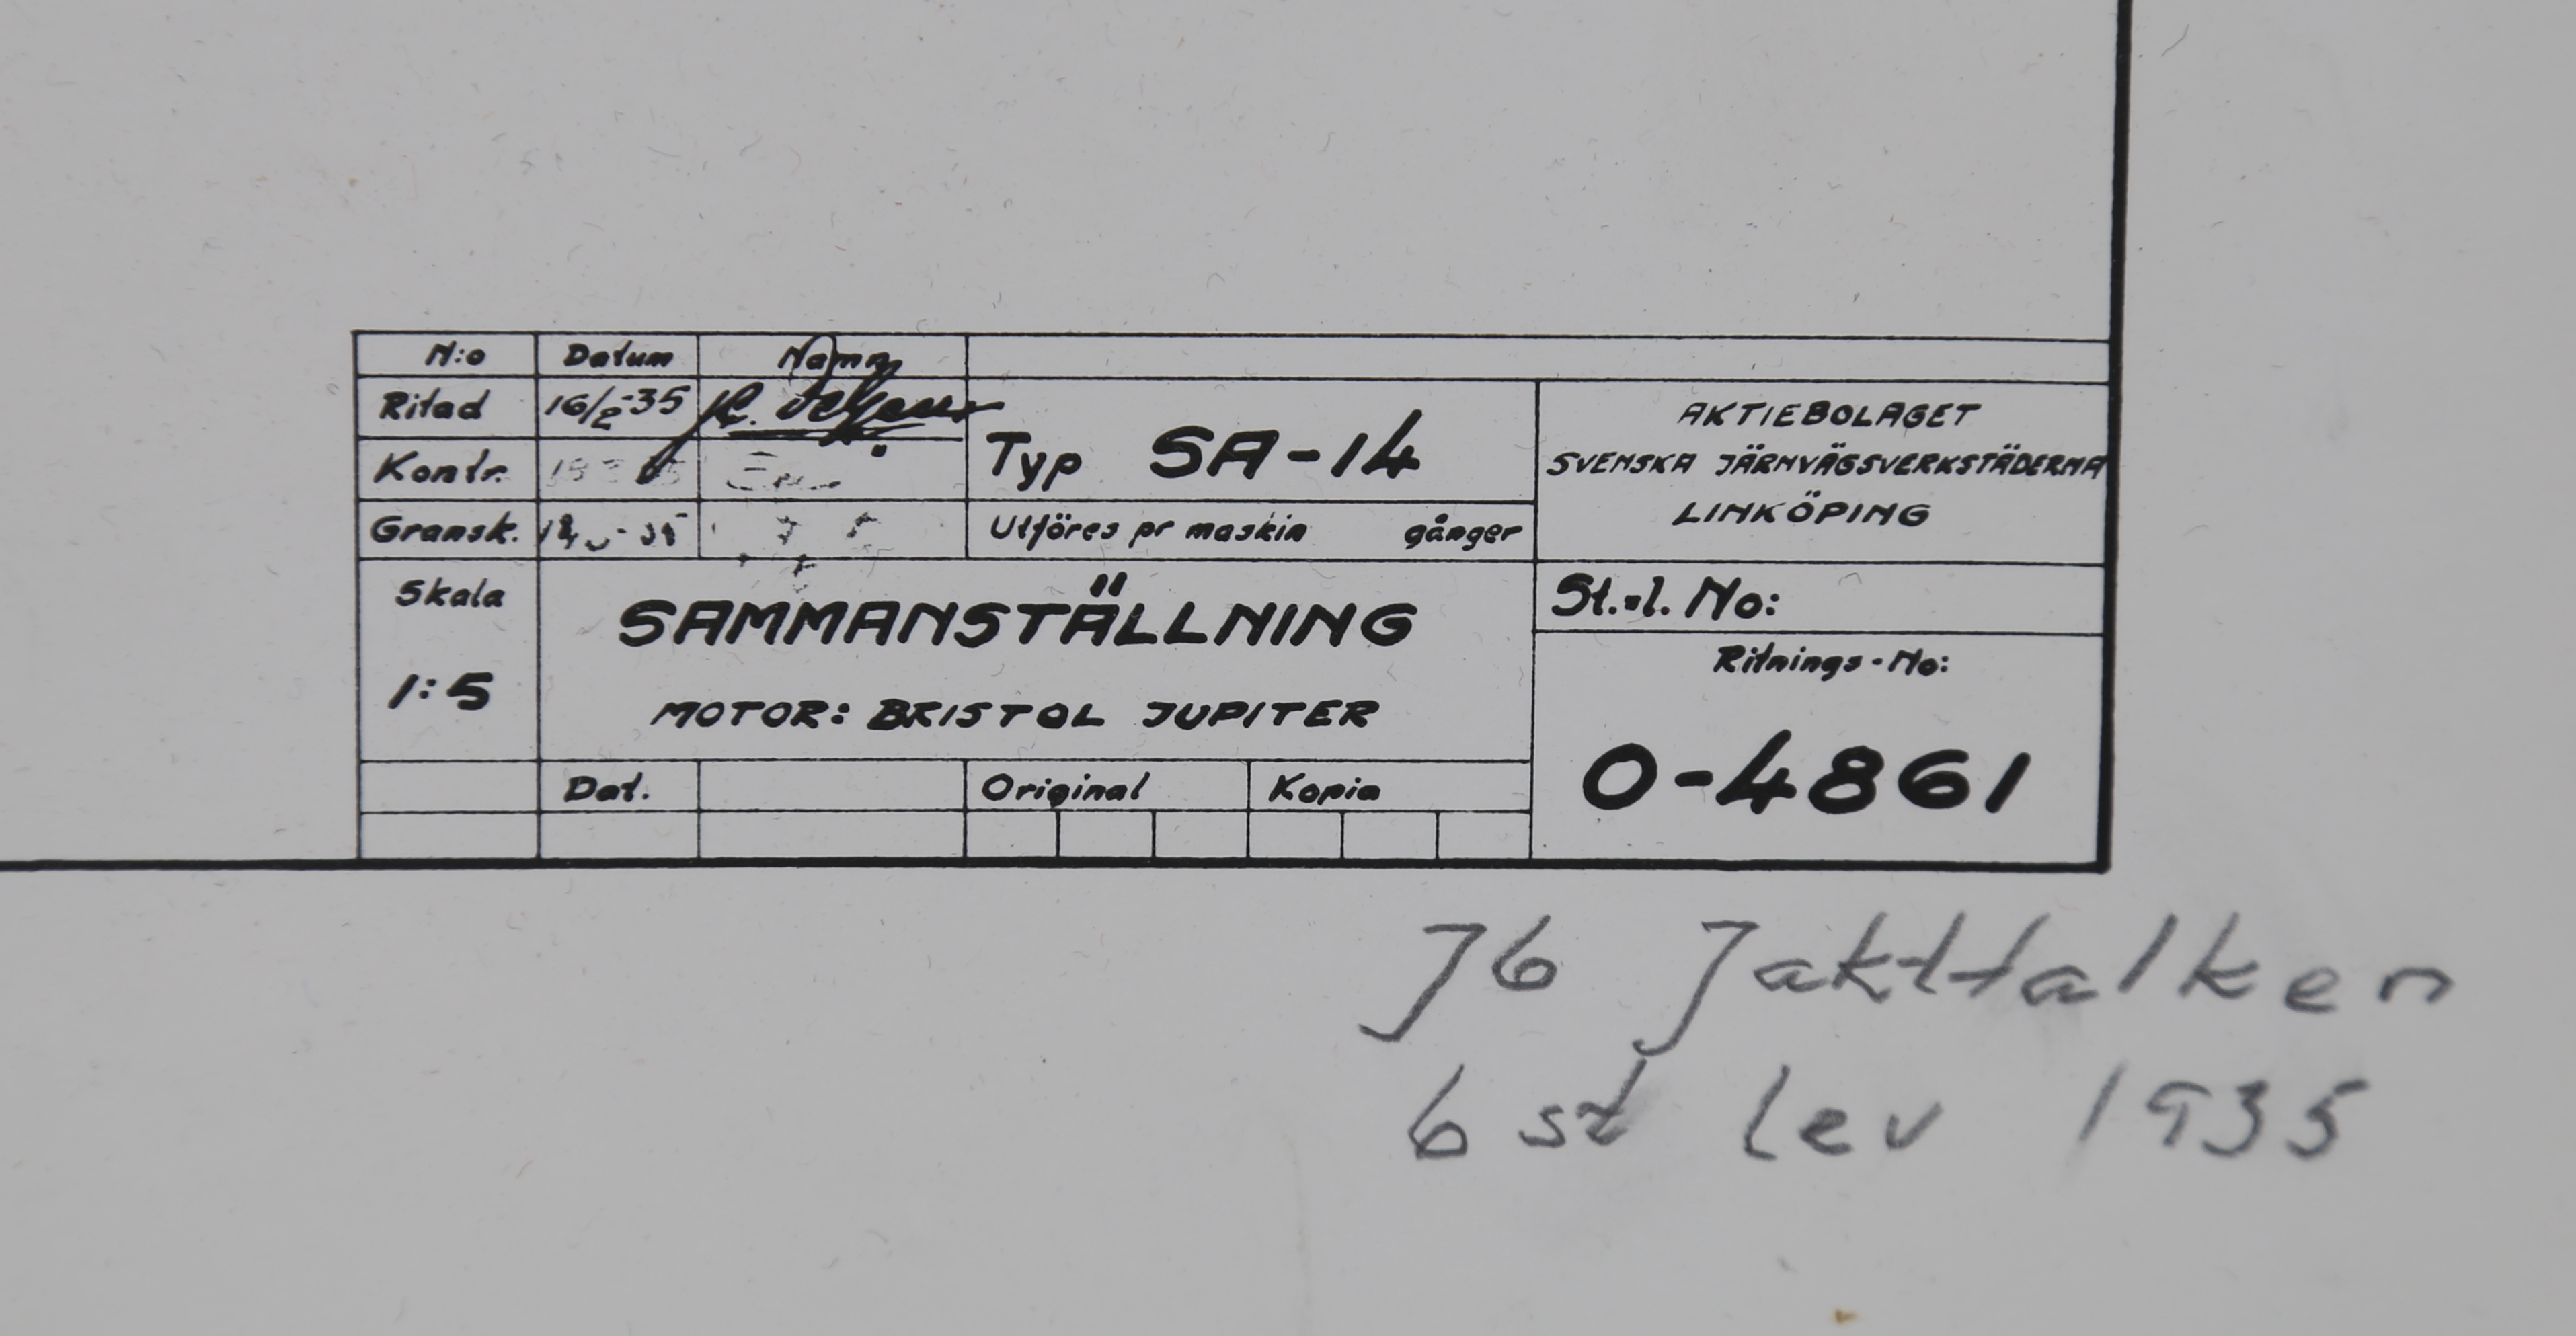 N:o Datum Namn
Ritad 16/2-35
Kontr.
Gransk.
Typ SA-14
Utföres pr maskin gånger
AKTIEBOLAGET
SVENSKA JÄRNVÄGSVERKSTÄDERNA
LINKÖPING
Skala
1:5
SAMMANSTÄLLNING
MOTOR: BRISTOL JUPITER
St.-l. No:
Ritnings-No:
0-4861
Dat. Original Kopia
J6 Jaktfalken
6 st lev 1935